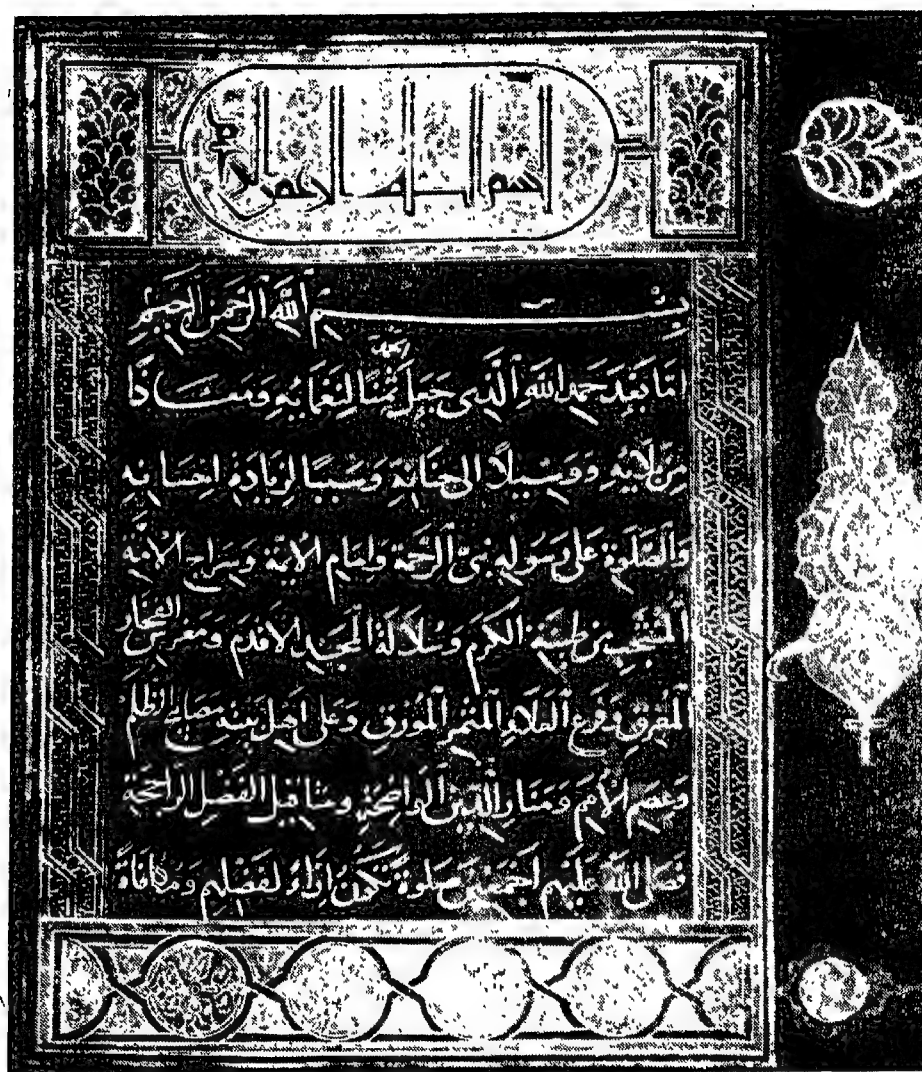 بسم الله الرحمن الرحيم
بِسْمِ اللهِ الرَّحْمنِ الرَّحِيمِ
امّا بَعْدَ حَمْدِ اللهِ الَّذِى جَعَلَ الحمد ثَمَنًا لِنَعْمَايِهِ وَمَعَاذًا
مِنْ بَلَايِهِ وَوَسِيلًا الى جِنَانِهِ وَسَبَبًا لِزِيَادَةِ اِحْسَانِهِ
وَالصَّلَوةِ عَلى رَسُولِهِ نَبِىِّ الرَّحْمَةِ وَاِمَامِ الاَيِمَّةِ وَسِرَاجِ الاُمَّةِ
المُنْتَخَبِ مِن طِينَةِ الكَرَمِ وَسُلَالَةِ المَجْدِ الاَقْدَمِ وَمَغْرِسِ الفَخَارِ
المُعْرِقِ وَفَرْعِ العَلَاءِ المُثْمِرِ المُورِقِ وَعَلى اَهْلِ بَيْتِهِ مَصَابِيحِ الظُّلَمِ
وَعِصَمِ الاُمَمِ وَمَنَارِ الدِّينِ الوَاضِحَةِ وَمَثَاقِيلِ الفَضْلِ الرَّاجِحَةِ
فَصَلّى اللهُ عَلَيْهِم اَجْمَعِينَ صَلوةً تَكُونُ اِزَاءً لِفَضْلِهِم وَمُكَافَاةً